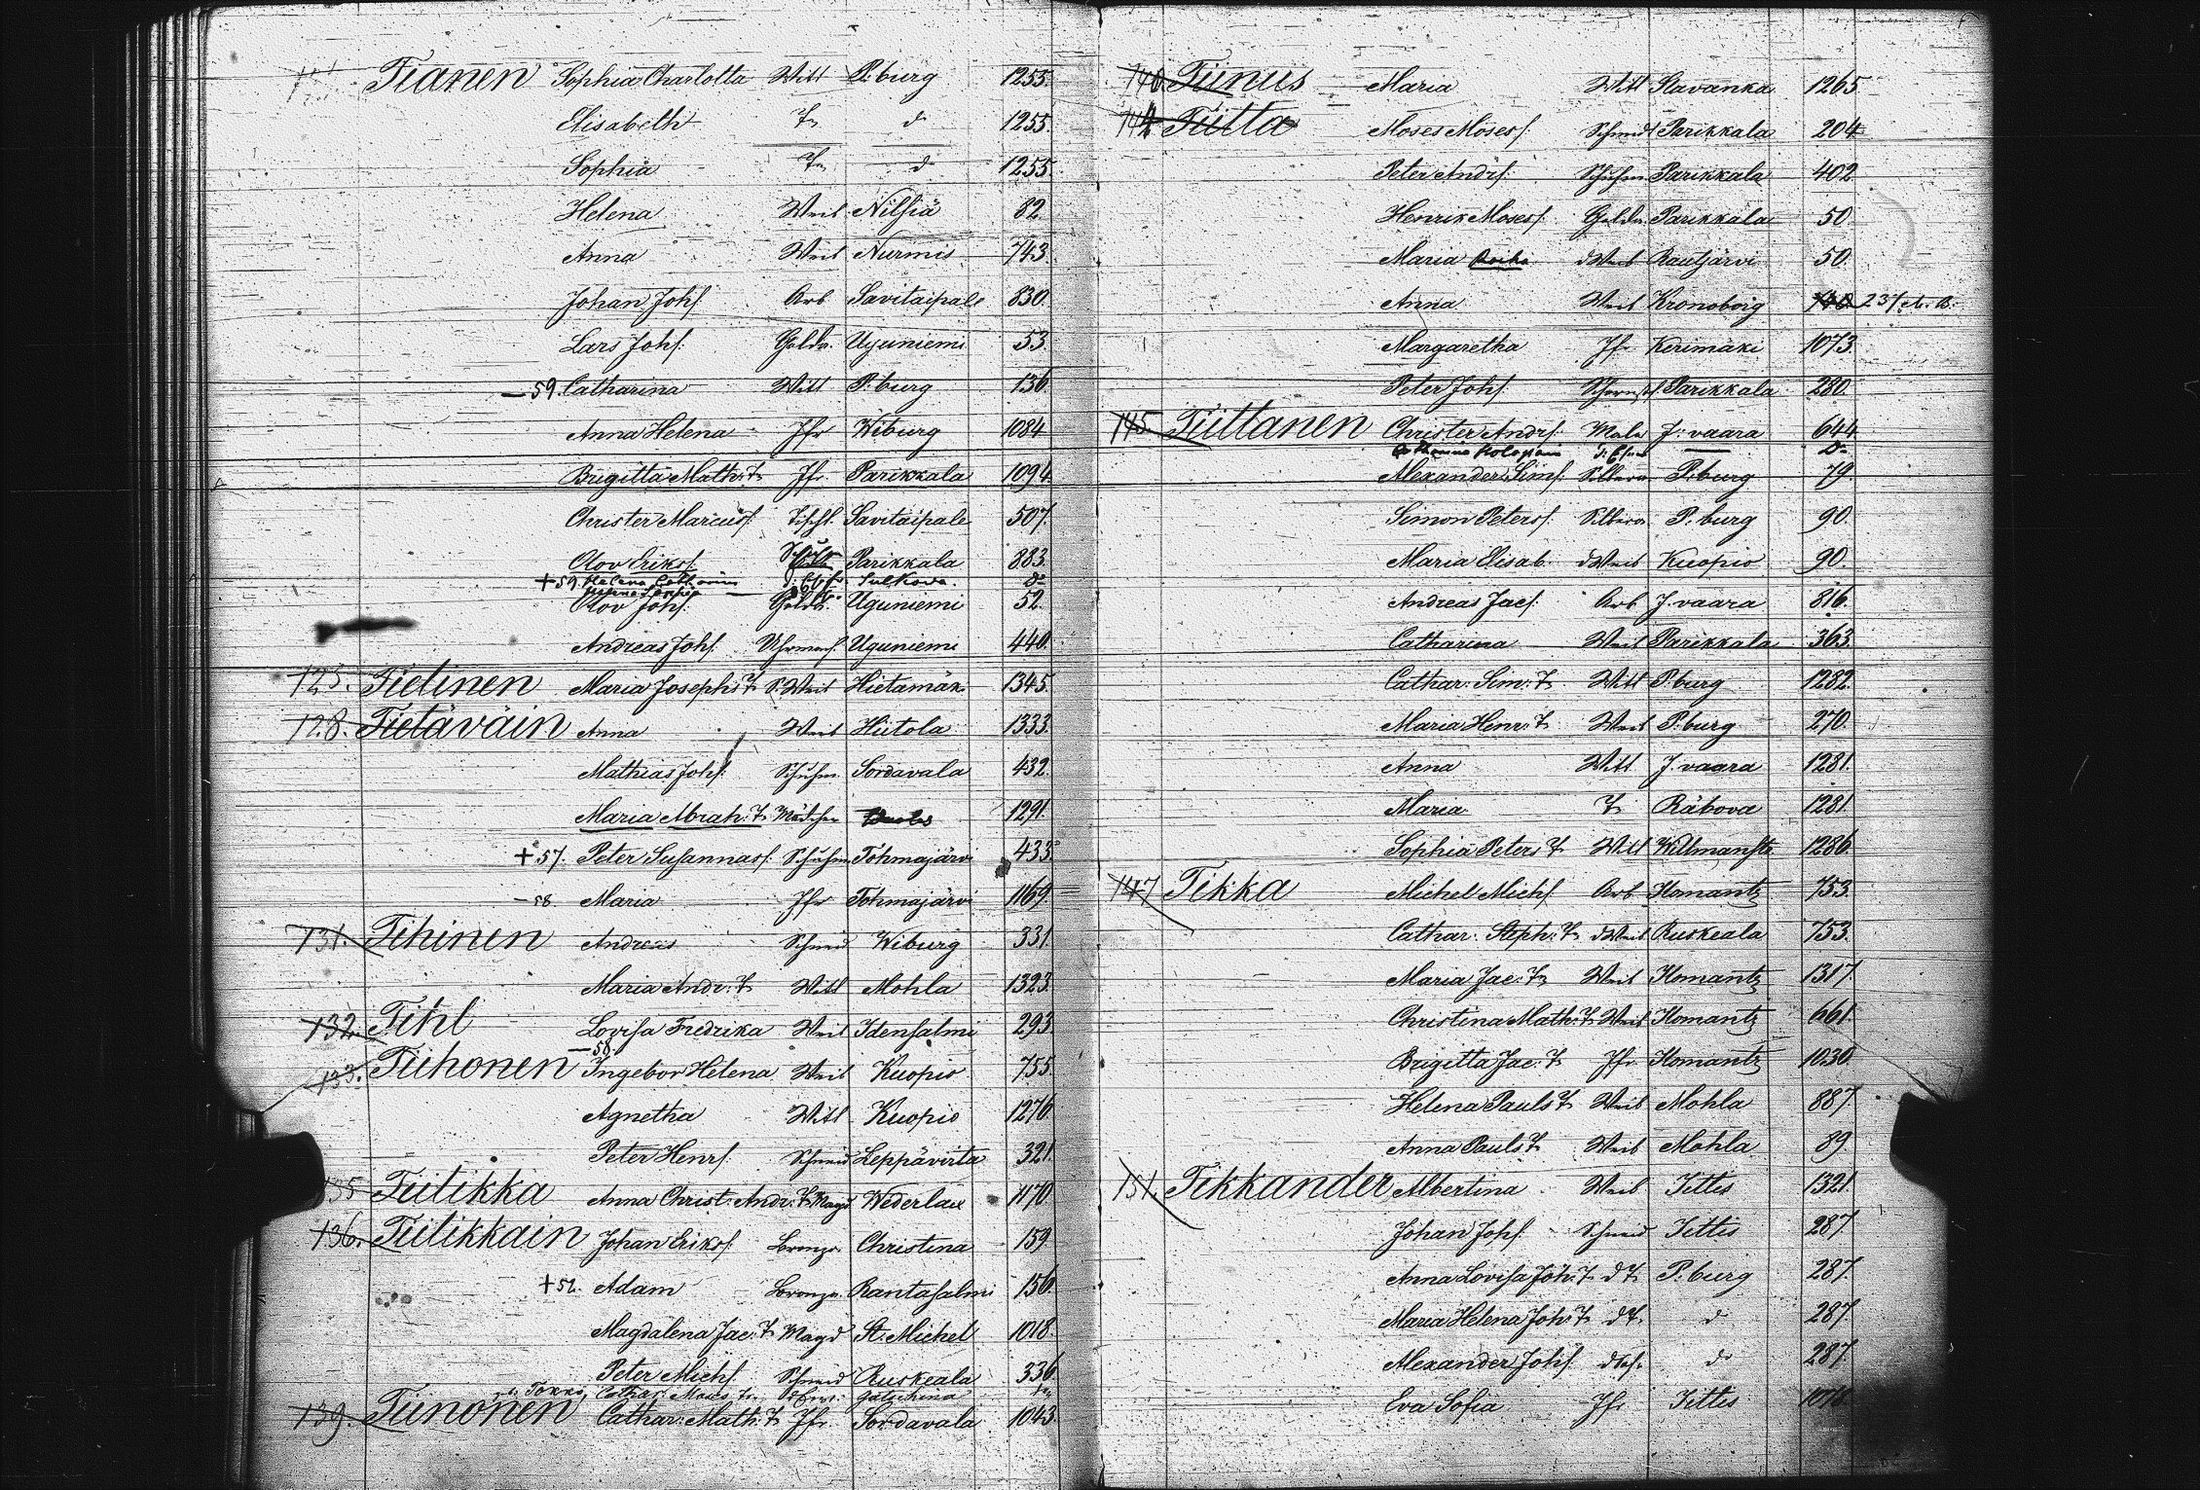 Tianen Sophia Charlotta Witt P.burg 1255.
Elisabeth T. d 1255.
Sophia T. d 1255.
Helena Weib Nilsiä 82.
Anna Weib Nurmis 743.
Johan Johs. Arb Savitaipale 830.
Lars Johs. Golda. Uguniemi 53.
– 59. Catharina Witt P.burg 136
Anna Helena Jfr Wiburg 1084
Brigitta Math. T. Jfr. Parikkala 1094.
Christer Marcuss. Tischl. Savitaipale 507.
Olov Eriks. Parikkala 883.
+ 59. Helena Catharina Sulkova. do
Olov Johs. Golda. Uguniemi 52.
Andreas Johs. Uhrmach. Uguniemi 440.
125. Tielinen Maria Josephs T. S. Weib Hietamäki 1345.
128. Tietäväin Anna Weib Hiitola 1333.
Mathias Johs. Schuhm. Sordavala 432.
Maria Abrah. T. Mädchen 1291.
+ 57. Peter Susannas. Schuhm Tohmajärvi 433.
– 58 Maria Jfr Tohmajärvi 1169.
131. Tihinen Andreas Schneid Wiburg 331.
Maria Andr. T. Witt Mohla 1323.
132. Tihl Lovisa Fredrika Weib Idensalmi 293.
– 58.
133. Tiihonen Ingebor Helena Weib Kuopio 755.
Agnetha Witt Kuopio 1276
Peter Henrs. Schneid Leppävirta 321.
135 Tiilikka Anna Christ. Andr. T. Magd Wederlax 1170
136. Tiilikkain Johan Eriks. Bronza. Christina 159
+ 52. Adam Bronza. Rantasalmi 156.
Magdalena Jac. T. Magd St. Michel 1018.
Peter Michs. Schneid Ruskeala 336.
Cathar. Gatschina
139. Tiinonen Cathar. Math. T. Jfr. Sordavala 1043.
140 Tiinus Maria Witt Slavänka 1265
142 Tiitta Moses Moses. Schmid Parikkala 204.
Peter Andrs. Schuhm Parikkala 402
Henrik Moses. Golda. Parikkala 50.
Maria d Weib Rautjärvi 50.
Anna Weib Kronoborg 237
Margaretha Jfr Kerimäki 1073.
Peter Johs. Parikkala 280.
145. Tiittanen Christer Andrs. Male J. vaara 644
Catharina do
Alexander Sims. Silbera P.burg 79.
Simon Peters. Silbera P. burg 90.
Maria Elisab. d Weib Kuopio 90.
Andreas Jacs. Arb J. vaara 816.
Catharina Weib Parikkala 363.
Cathar. Sim. T. Witt P.burg 1282.
Maria Henr. T. Weib P.burg 270.
Anna Witt J. vaara 1281.
Maria T. Räbova 1281.
Sophia Peters T. Witt Willmanstr 1286.
147 Tikka Michel Michs. Arb Ilomantz 753.
Cathar. Steph. T. d Weib Ruskeala 753.
Maria Jac. T. Weib Ilomantz 1317.
Christina Math. T. Weib Ilomantz 661.
Brigitta Jac. T. Jfr Ilomantz 1030.
Helena Pauls T. Weib Mohla 887.
Anna Pauls T. Weib Mohla 89
151. Tikkander Albertina Weib Jittis 1321.
Johan Johs. Schneid Jittis 287.
Anna Lovisa Joh. T. d T. P. burg 287.
Maria Helena Joh. T. d T. d 287.
Alexander Johs. d 287.
Eva Sofia Jfr Jittis